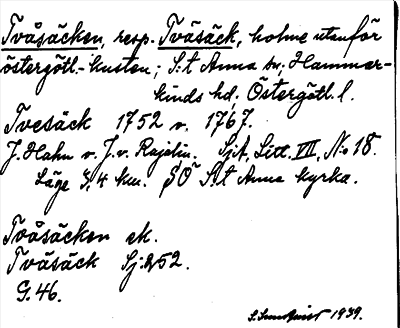 Tvåsäcken, resp. Tväsäck, holme utanför
östergötl.-kusten; S:t Anna sn; Hammar-
kinds hd; Östergötl. l.
Tvesäck 1752 v. 1767.
J. Hahn v. J. v. Rajalin. SjA, Litt. VII, N:o 18.
Läge 3,4 km. SÖ S:t Anna kyrka.
Tvåsäcken ek.
Tväsäck Sj: 252.
G. 46.
1939.